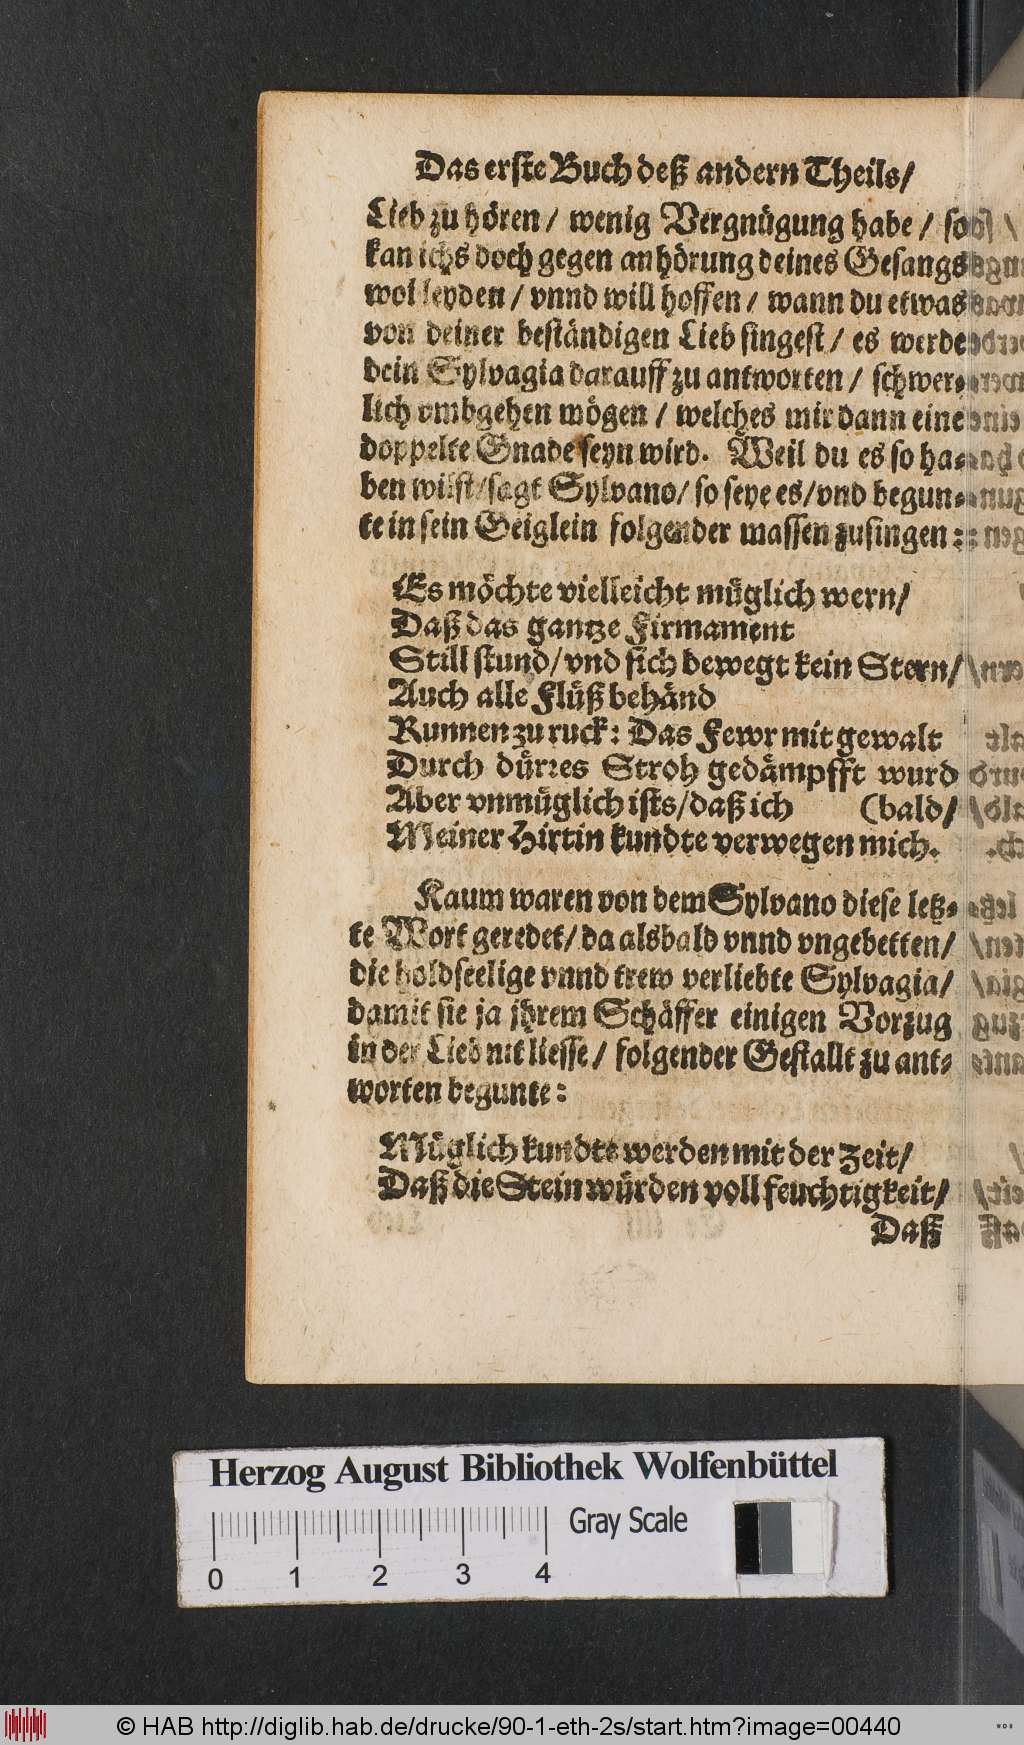 Das erste Buch deß andern Theils/
Lieb zu hören / wenig Vergnügung habe / so
kan ichs doch gegen anhörung deines Gesangs
wol leyden / vnnd will hoffen / wann du etwas
von deiner beständigen Lieb singest / es werde
dein Sylvagia darauff zu antworten / schwer-
lich vmbgehen mögen / welches mir dann eine
doppelte Gnade seyn wird. Weil du es so ha-
ben wilst/sagt Sylvano/ so seye es/vnd begun-
te in sein Geiglein folgender massen zusingen:
Es möchte vielleicht müglich wern/
Daß das gantze Firmament
Still stund/vnd sich bewegt kein Stern/
Auch alle Flüß behänd
Runnen zu ruck: Das Fewr mit gewalt
Durch dürres Stroh gedämpfft wurd
Aber vnmüglich ists/daß ich (bald/
Meiner Hirtin kundte verwegen mich.
Kaum waren von dem Sylvano diese letz-
te Wort geredet/ da alsbald vnnd vngebetten/
die holdseelige vnnd trew verliebte Sylvagia/
damit sie ja jhrem Schäffer einigen Vorzug
in der Lieb nit liesse / folgender Gestallt zu ant-
worten begunte:
Müglich kundte werden mit der Zeit/
Daß die Stein würden voll feuchtigkeit/
Daß
Herzog August Bibliothek Wolfenbüttel
Gray Scale
0 1 2 3 4
© HAB http://diglib.hab.de/drucke/90-1-eth-2s/start.htm?image=00440